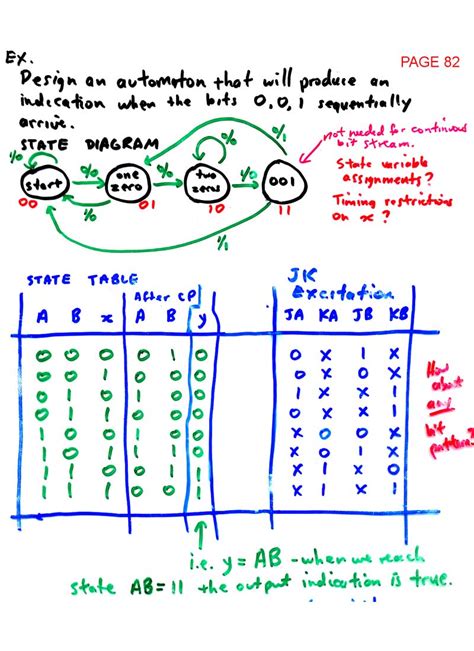 EX.
PAGE 82
Design an automaton that will produce an
indication when the bits 0,0,1 sequentially
arrive.
STATE DIAGRAM
not needed for continuous
bit stream.
State variable
assignments?
Timing restrictions
on x?
start
one
zero
two
zeros
001
00
01
10
11
STATE TABLE
After CP
A B x A B y
JK
Excitation
JA KA JB KB
0 0 0 0 1 0 0 X 1 X
0 0 1 0 0 0 0 X 0 X
0 1 0 1 0 0 1 X X 1
0 1 1 0 0 0 0 X X 1
1 0 0 1 0 0 X 0 0 X
1 0 1 1 1 0 X 0 1 X
1 1 0 0 1 1 X 1 X 0
1 1 1 0 0 1 X 1 X 1
How
about
any
bit
pattern?
i.e. y = AB - when we reach
state AB = 11 the output indication is true.